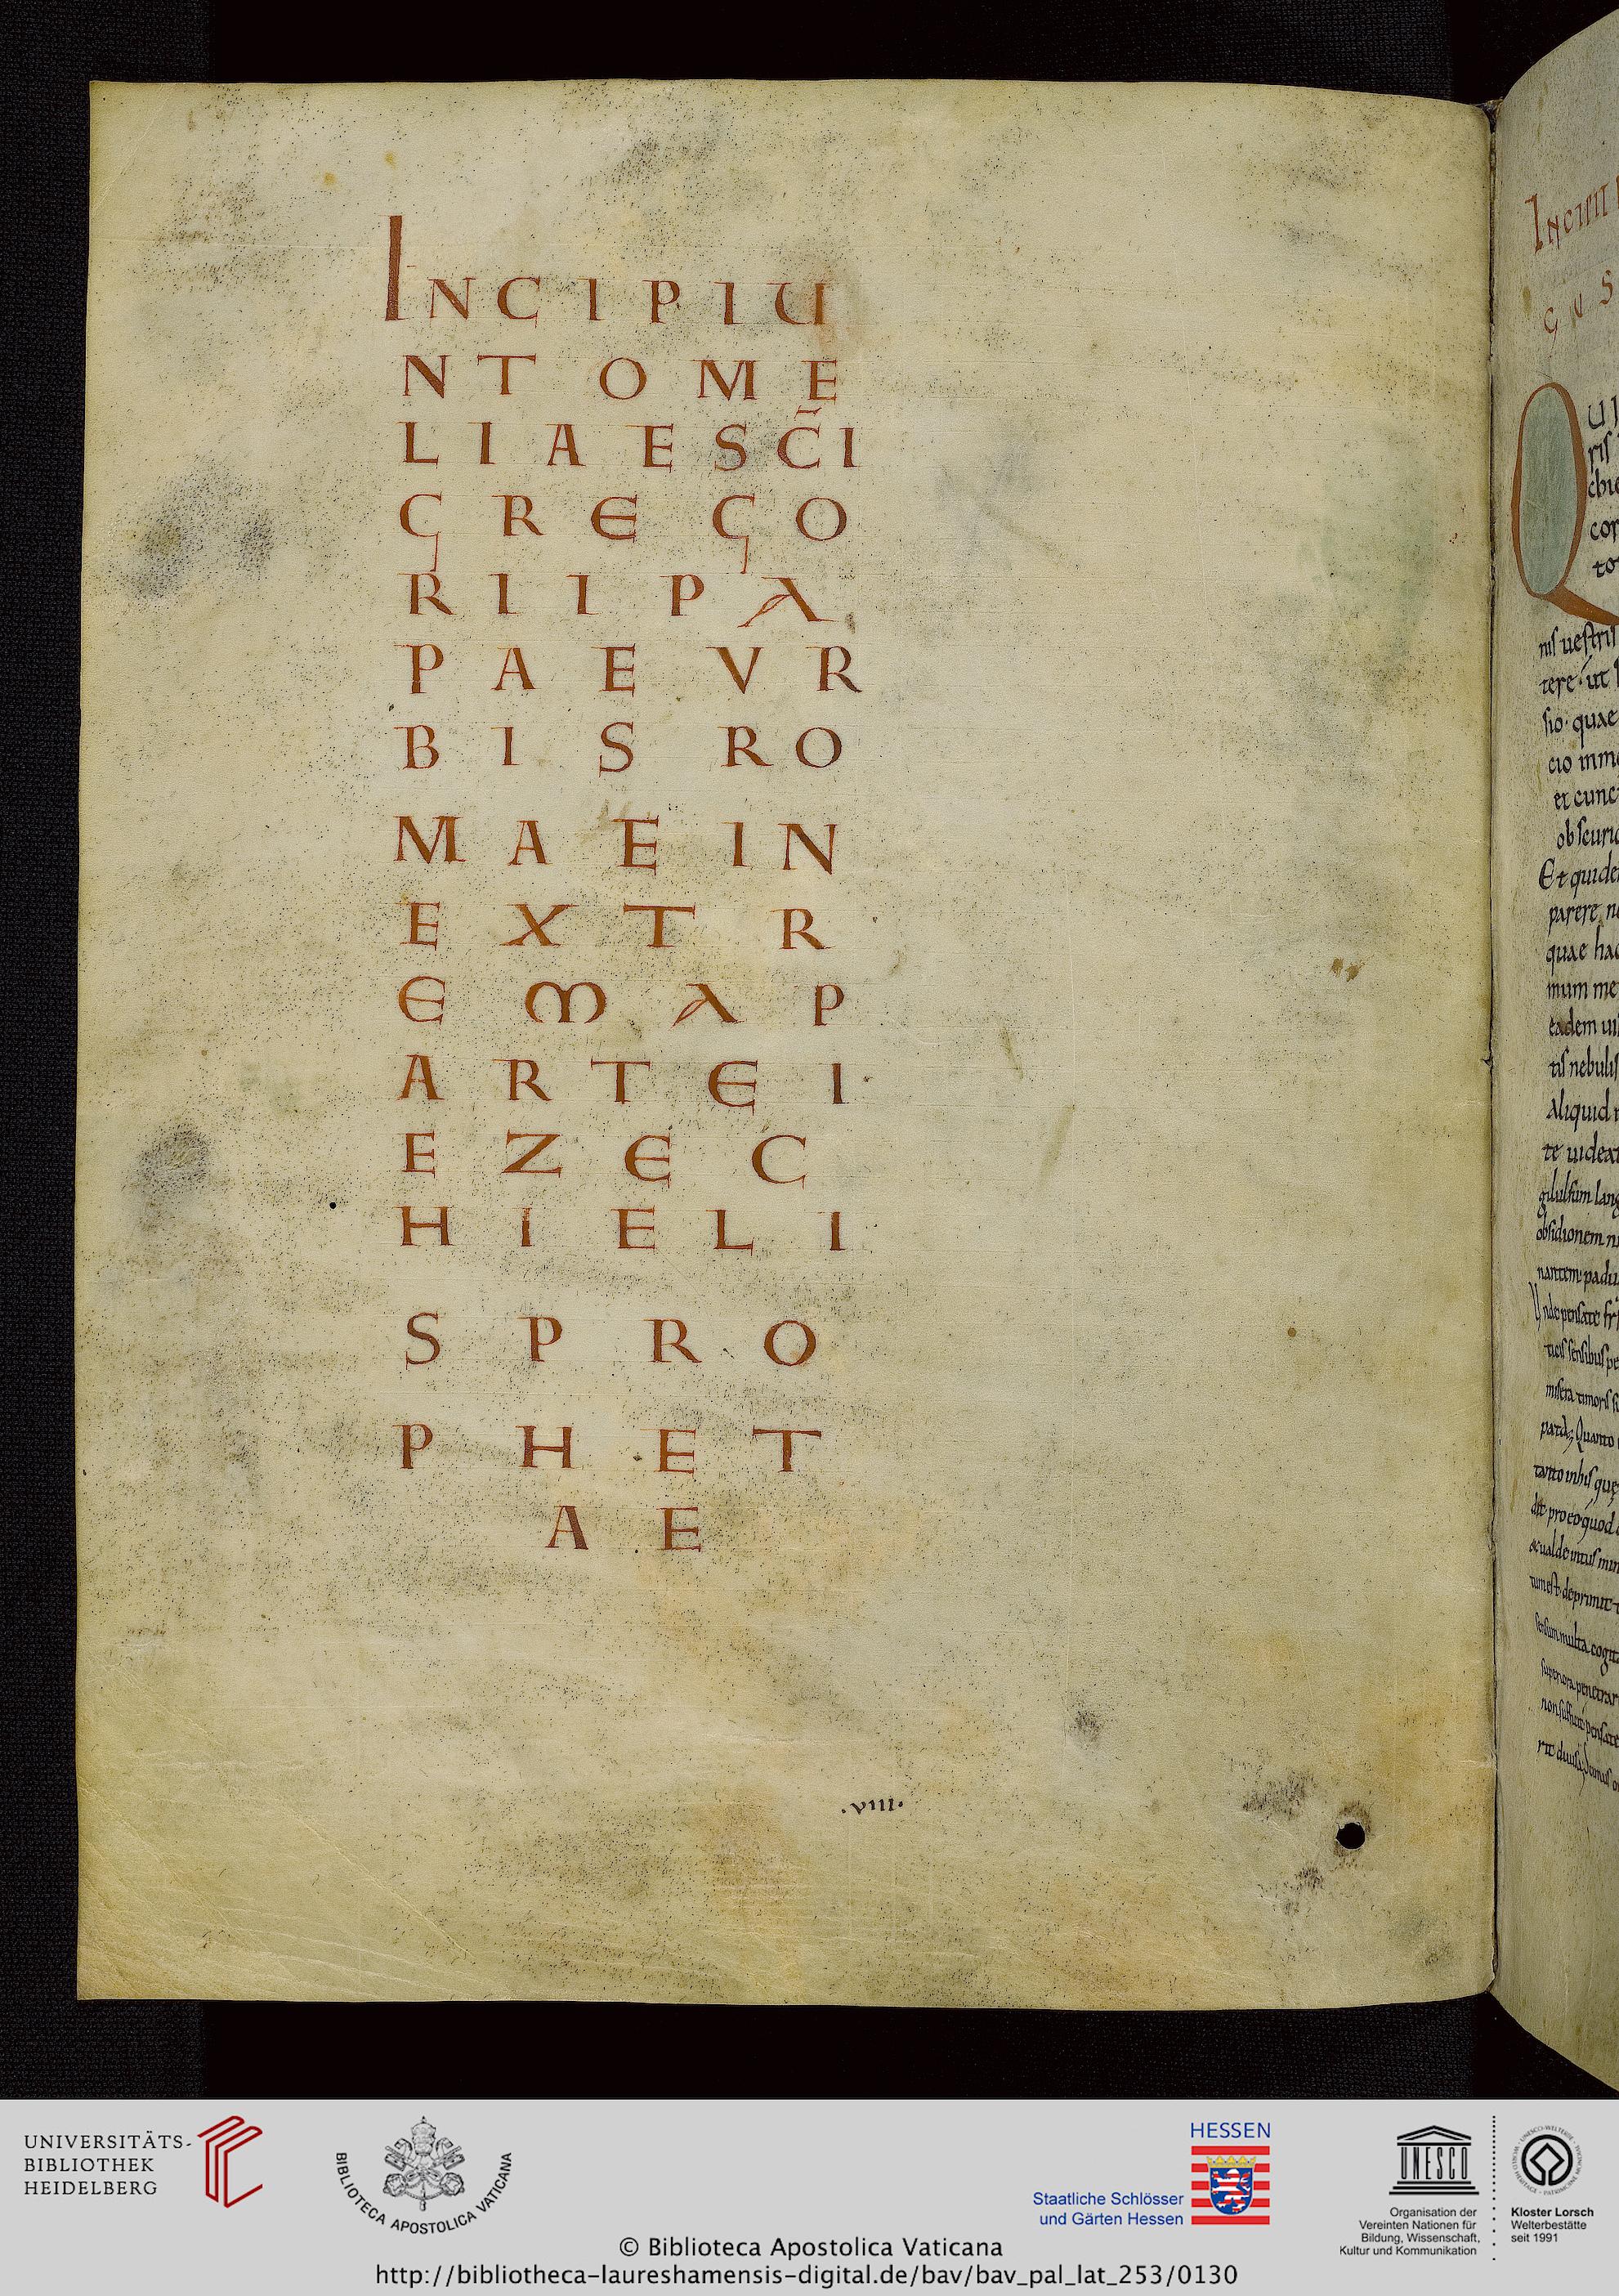 INCIPIU
NT OME
LIAE SC̃I
GREGO
RII PA
PAE VR
BIS RO
MAE IN
EXTR
EMA P
ARTE I
EZEC
HIELI
S PRO
PHET
AE
.VIII.
INCIPIT
GUS
ris
nis uestris
tere· ut
sio· quae
cio inm
et cunc
obscuri
Et quide
parere n
quae ha
mum me
eadem ui
tis nebulis
Aliquid
te uidea
gilulfum lang
obsidionem n
nantem padu
Unde pensate fr
ticis sensibus pe
misera timoris
Quanto
tanto in his que
dit pro eo quod
tum est deprimit
sensum multa cogit
superiora penetrar
non sufficit pensate
UNIVERSITÄTS-
BIBLIOTHEK
HEIDELBERG
BIBLIOTECA APOSTOLICA VATICANA
HESSEN
Staatliche Schlösser
und Gärten Hessen
UNESCO
Organisation der
Vereinten Nationen für
Bildung, Wissenschaft,
Kultur und Kommunikation
Kloster Lorsch
Welterbestätte
seit 1991
© Biblioteca Apostolica Vaticana
http://bibliotheca-laureshamensis-digital.de/bav/bav_pal_lat_253/0130